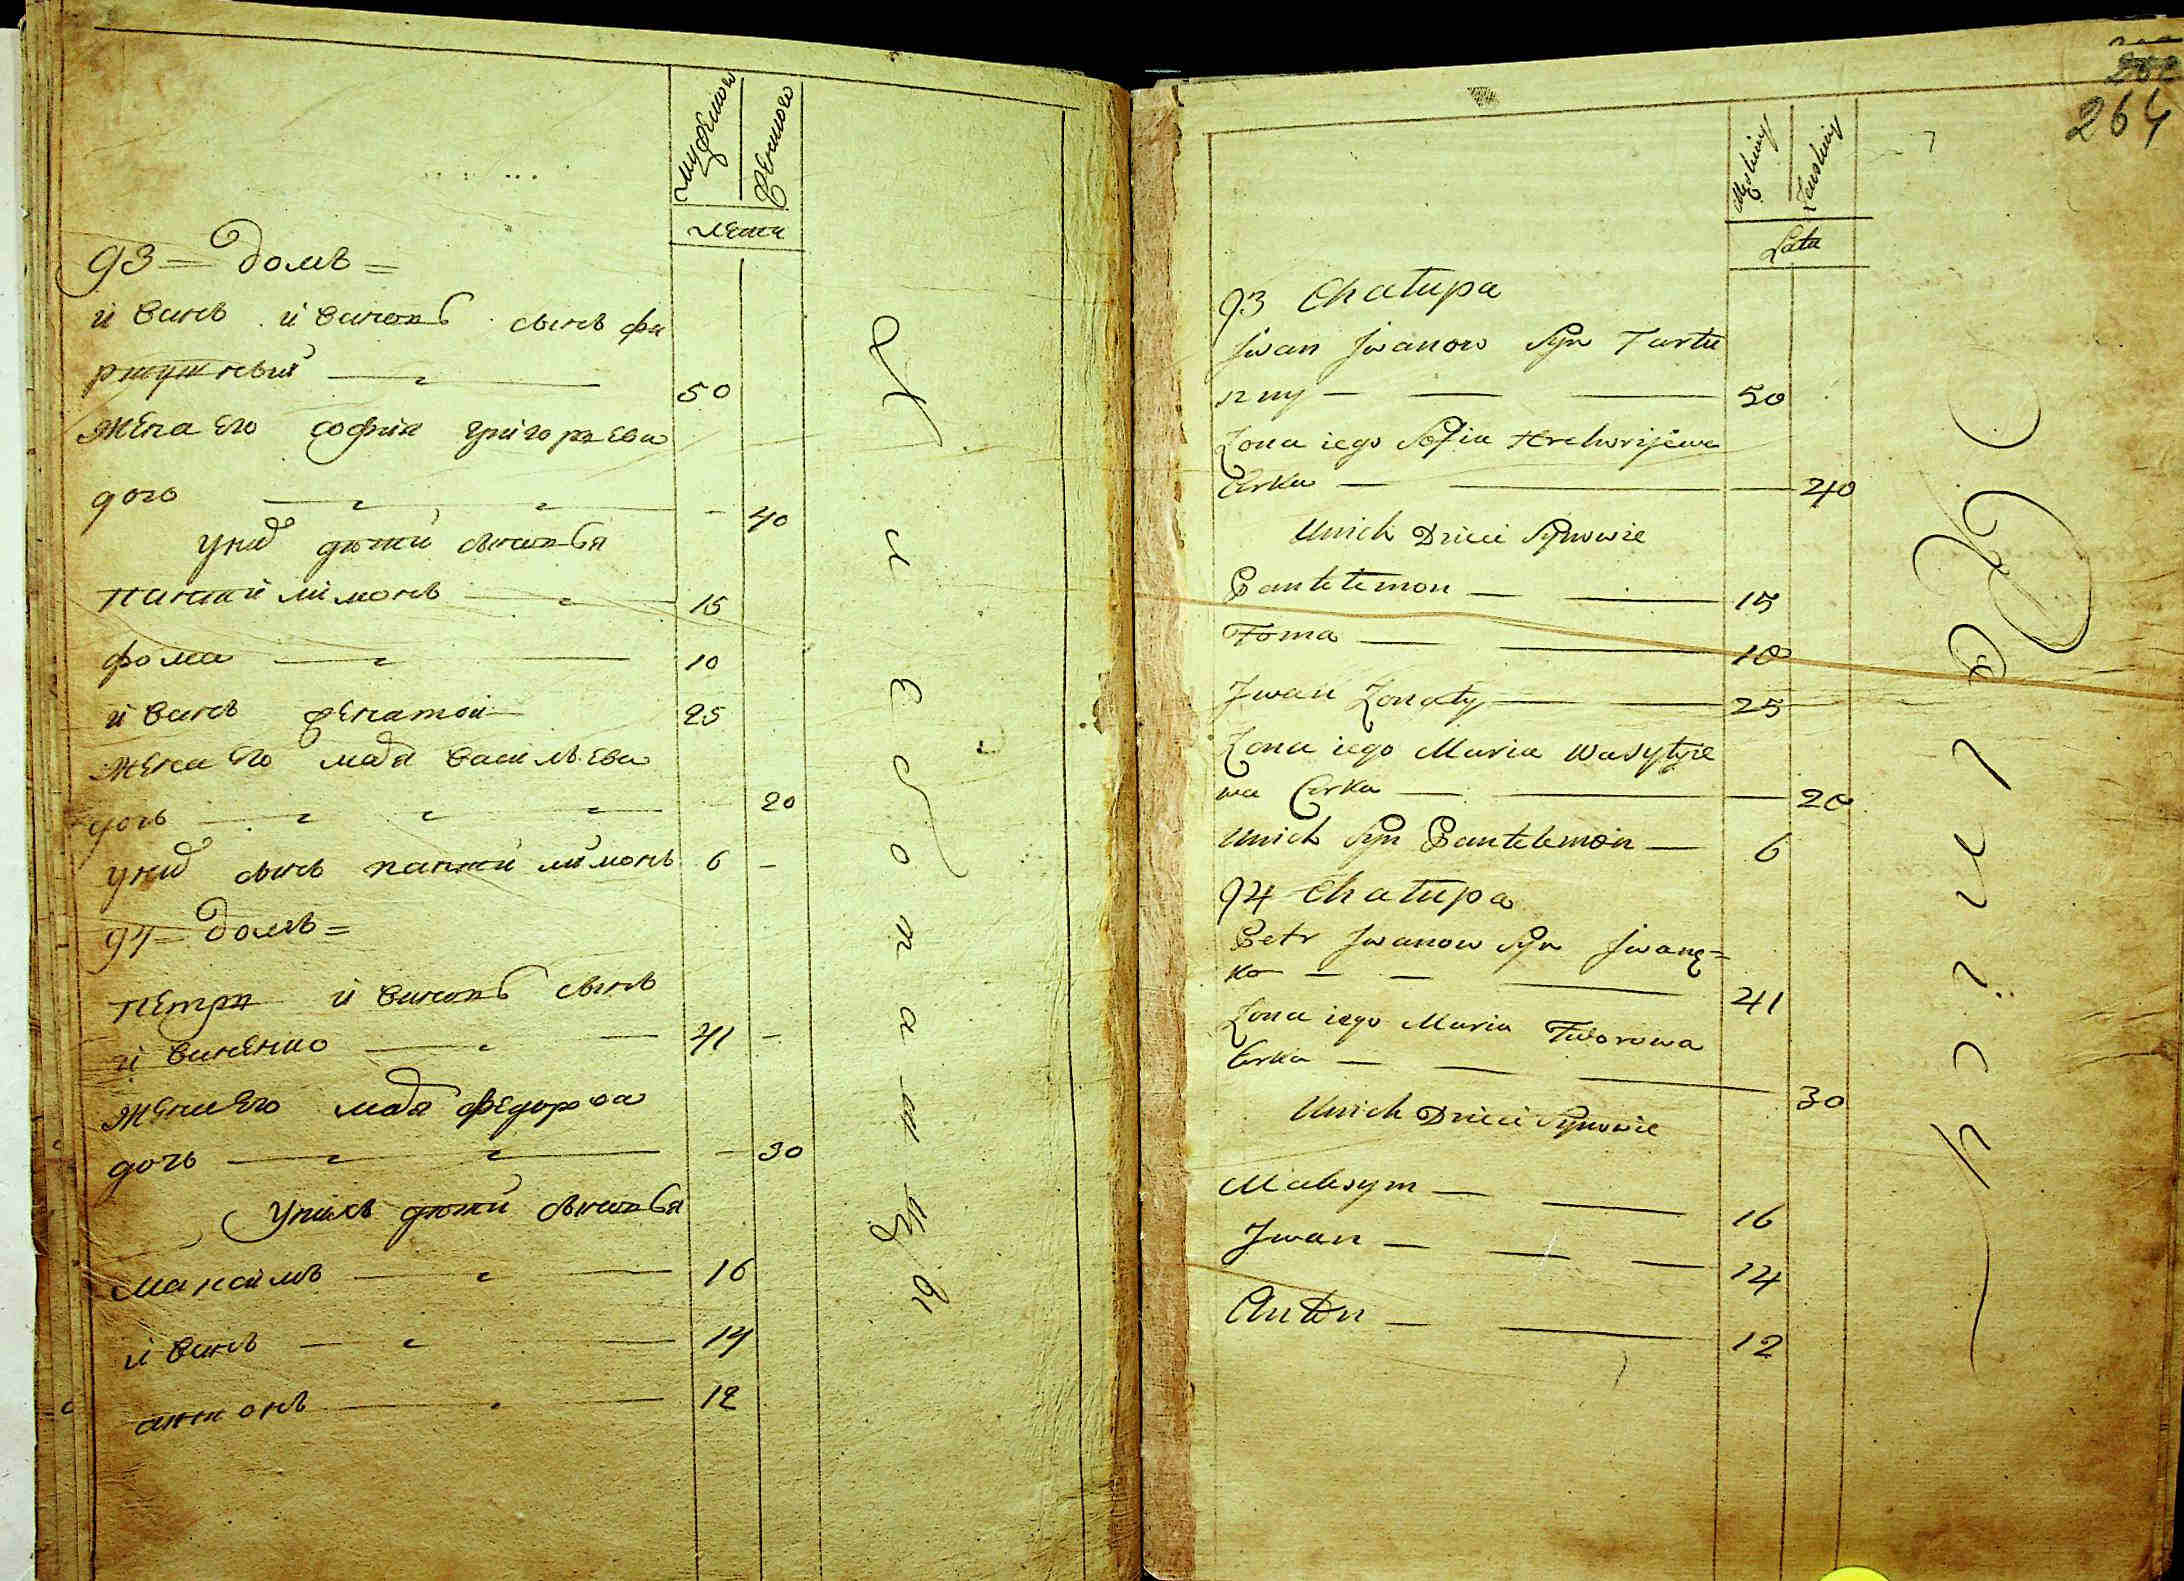 мужеска
женска
лета
93 = домъ =
иванъ ивановъ сынъ фа
ртушный — 50
жена его софия григорьева
дочь — 40
у них дети сыновья
пантилимонъ — 15
фома — 10
иванъ женатой 25
жена его марья васильева
дочь — 20
у них сынъ пантилимонъ 6 —
94 = домъ =
петръ ивановъ сынъ
иваненко — 41 —
жена его марья федорова
дочь — 30
у нихъ дети сыновья
максимъ — 16
иванъ — 14
антонъ — 12
264
Męskiey
Żenskiey
Lata
93 Chałupa
Jwan Jwanow Syn Fartu
szny — 50
Żona iego Sofia Hrehorijewa
Cerka — 40
Unich Dzieci Synowie
Pantelemon — 15
Foma — 10
Jwan Żonaty — 25
Żona iego Maria Wasylyie
wa Cerka — 20
Unich Syn Pantelemon — 6
94 Chałupa
Petr Jwanow Syn Jwanę=
ko — 41
Żona iego Maria Fworowa
Cerka — 30
Unich Dzieci Synowie
Maksym — 16
Jwan — 14
Anton — 12